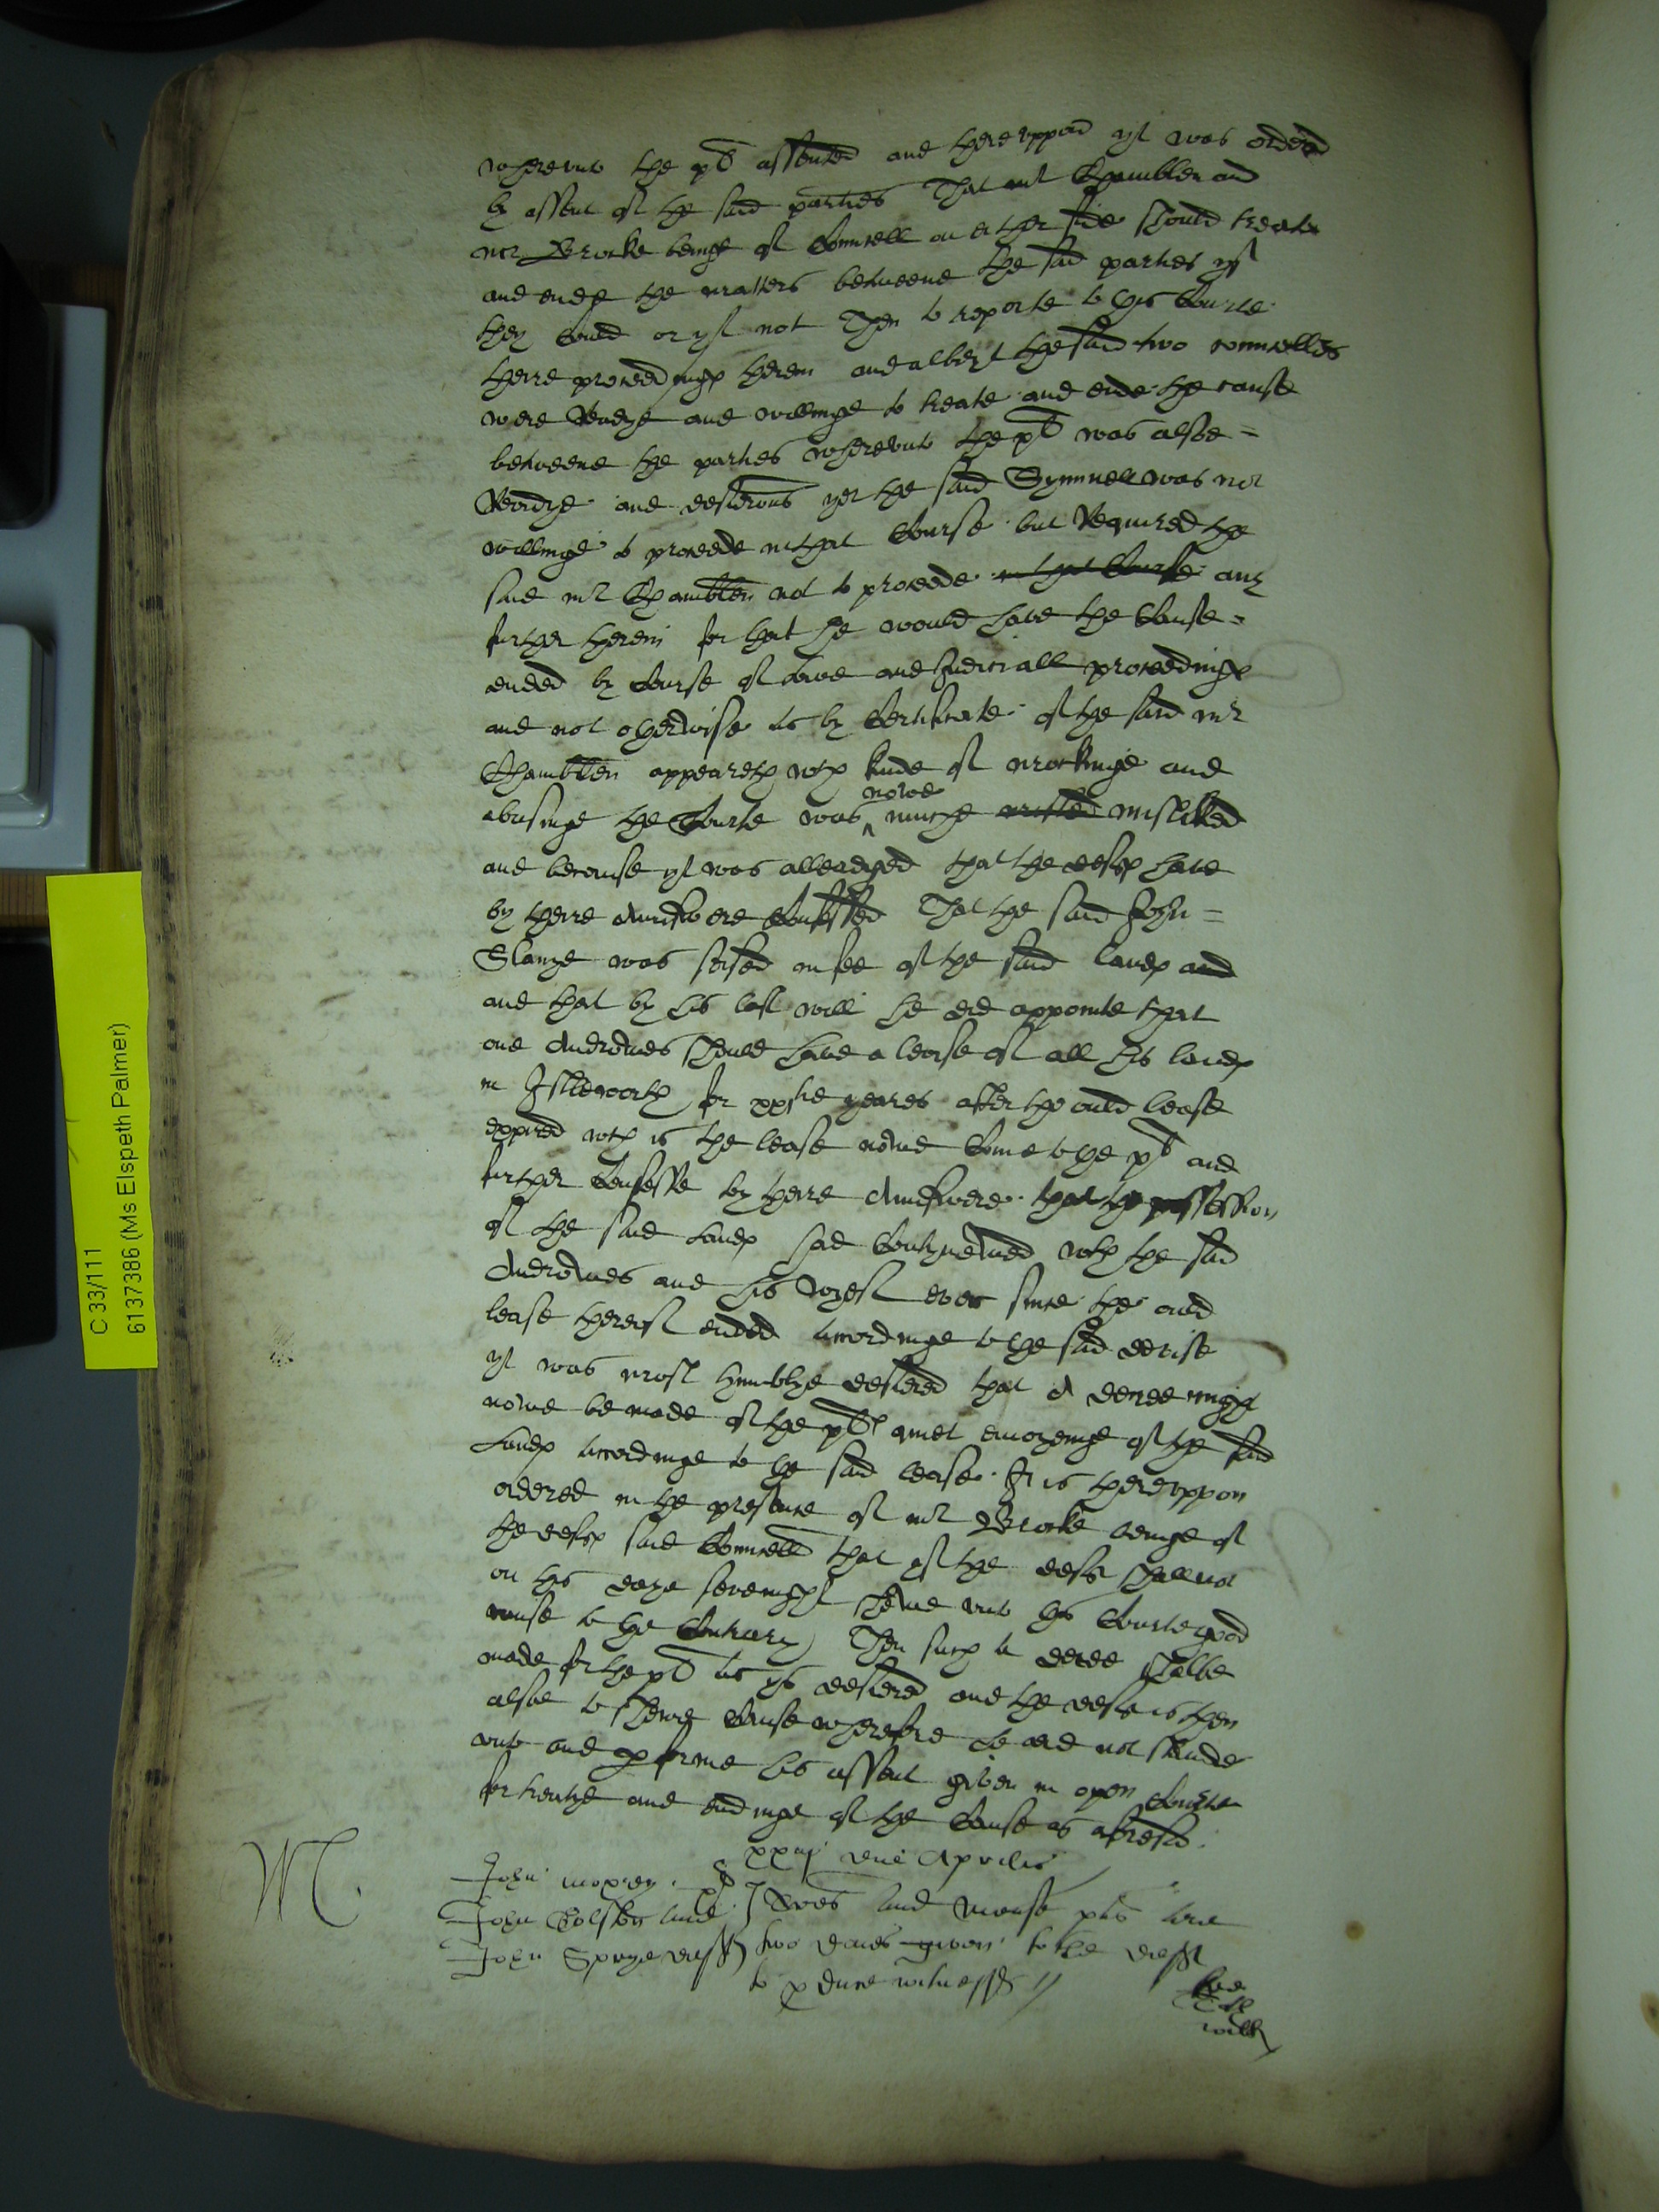 wherevnto the plt assented and therevppon yt was ordered
by assent of the said parties That mr Chamblen and
mr Brocke beinge of Councell on ether side should treate
and ende the matters betweene the said parties yf
they Could or yf not Then to reporte to this Courte
theire proceedinges therein and albeyt the said two councelles
were Readye and willinge to treate and ende the cause
betweene the parties wherevnto the plt was alsoe =
Readye and desierous yet the said Symnell was not
willinge to proceede in that Course but Required the
said mr Chamblen not to proceede in that Course any
further therein for that he would have the Cause =
ended by Course of Lawe and Judiciall proceedinges
and not otherwise as by Certificate of the said mr
Chamblen appeareth wch kinde of mockinge and
abusinge the Courte was nowe muche misliked
and because yt was alleadged that the deftes have
by theire Aunswere Confessed That the said John =
Slanye was seised in fee of the said landes and
and that by his last will he did appointe that
one Androwes should have a lease of all his landes
in Istleworth for yeares after the ould lease
expired wch is the lease nowe Come to the plt and
further Confesse by theire Aunswere that the possession
of the said Landes had Contynewed wth the said
Androwes and his ever since the ould
lease thereof ended accordinge to the said devise
yt was most humblye desiered that A decree might
nowe be made of the pltes quiet enioyenge of the said
Landes accordinge to the said lease. It is therevppon
ordered in the presence of mr Brocke beinge of
the deftes said Councell that yf the deft shall not
on this daye sevenight shewe vnto this Courte good
cause to the Contrary) Then such a decree shalbe
made for the plt as ys desiered and the deft is then
alsoe to shewe Cause wherefore he did not stande
vnto and performe his assent given in open Courte
for treatye and endinge of the Cause as aforesaid.
xxiij die Aprilis
John plt
John and
John deftes
two daies given to the deft
to produce witnesses //
C 33/111
6137386 (Ms Elspeth Palmer)